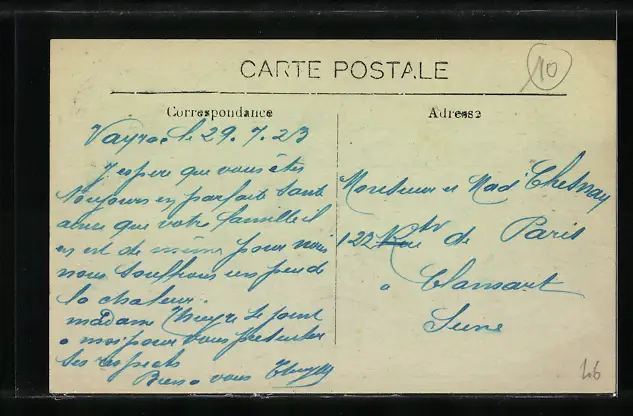 CARTE POSTALE
10
Correspondance
Adresse
Vayrac le 29. 7. 23
J'espere que vous êtes
toujours en parfait santé
ainsi que votre famille il
en est de même pour nous
nous souffrons un peu de
la chaleur.
madame Theyre se joint
a moi pour vous présenter
ses respects
Bien a vous
Monsieur et Mad Chesnay
122 Rte de Paris
a Clamart
Seine